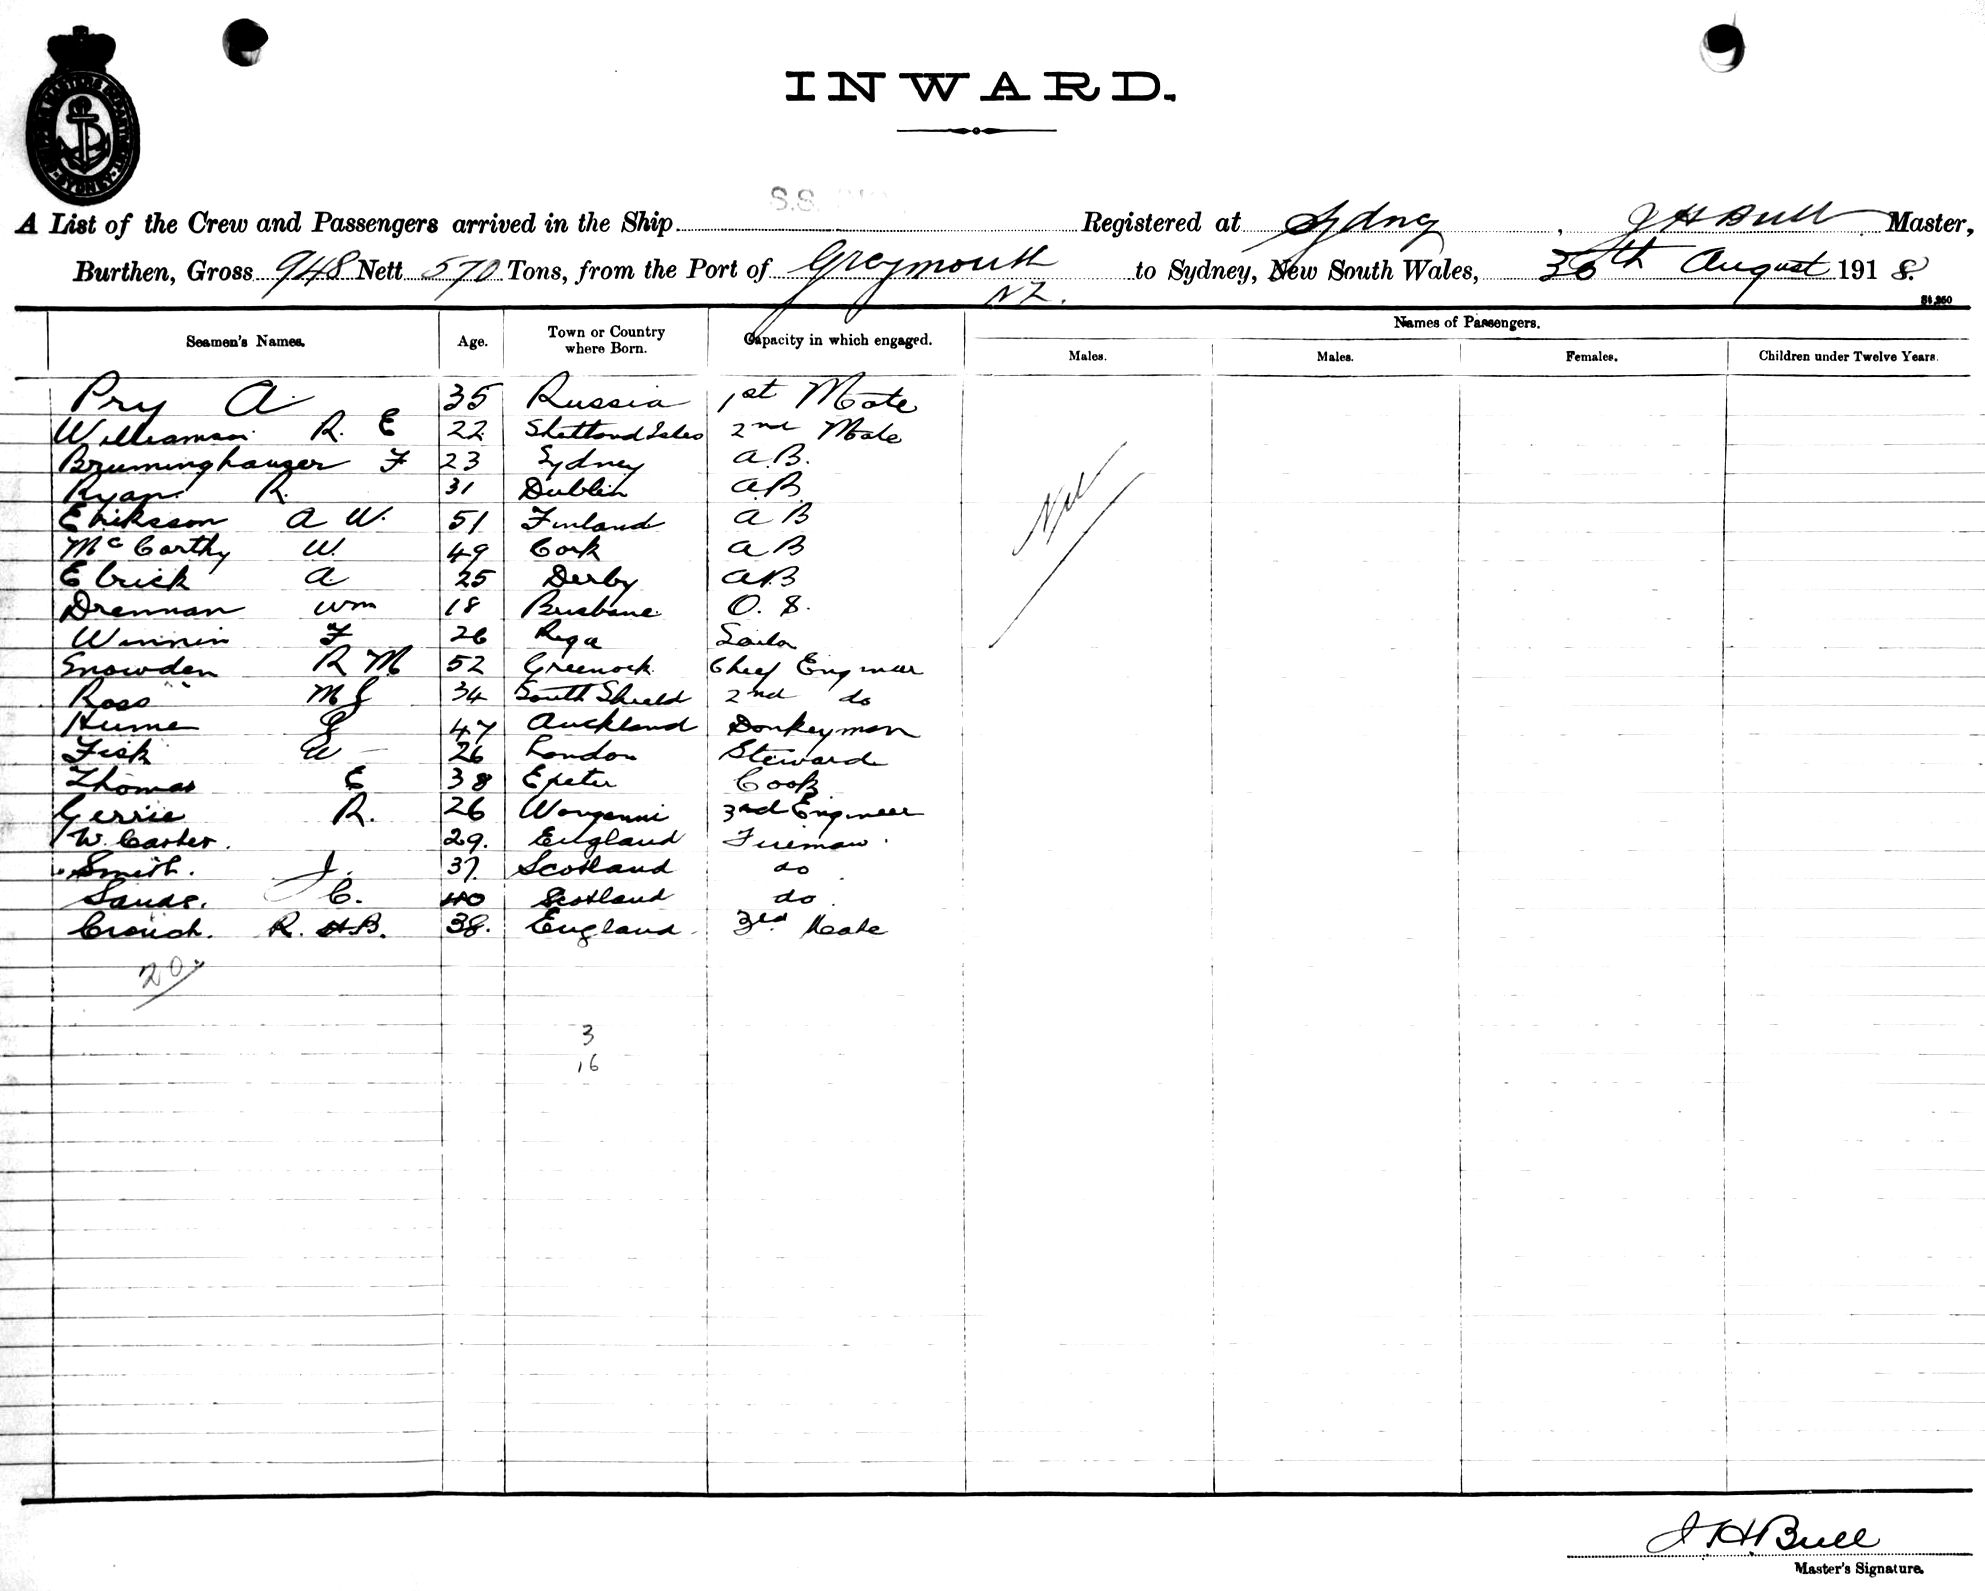 INWARD.
S.S.
A List of the Crew and Passengers arrived in the Ship Registered at Sydney, J H Bull Master,
Burthen, Gross 948 Nett 570 Tons, from the Port of Greymouth to Sydney, New South Wales, 30th August 1918.
NZ.
Seamen's Names. Age. Town or Country where Born. Capacity in which engaged. Names of Passengers.
Males. Males. Females. Children under Twelve Years.
Pry A. 35 Russia 1st Mate
Williamson R. E 22 Shetland Isles 2nd Mate
Bruminghauser F 23 Sydney A.B.
Ryan R. 31 Dublin A.B.
Eriksson A W. 51 Finland A B
McCarthy W. 49 Cork A B
Ebrick A 25 Derby A.B
Drennan Wm 18 Brisbane O. S.
Winnin F 26 Riga Sailor
Snowden R M 52 Greenock Chief Engineer
Ross M J 34 South Shield 2nd do
Hume J 47 Auckland Donkeyman
Fisk W 26 London Steward
Thomas E 38 Exeter Cook
Gerrie R. 26 3rd Engineer
W. Carter. 29. England Fireman
Smith. J. 37. Scotland do
Sands. C. 40 Scotland do
Crouch. R. H.B. 38. England 3rd Mate
Nil
20
3
16
J. H. Bull
Master's Signature.